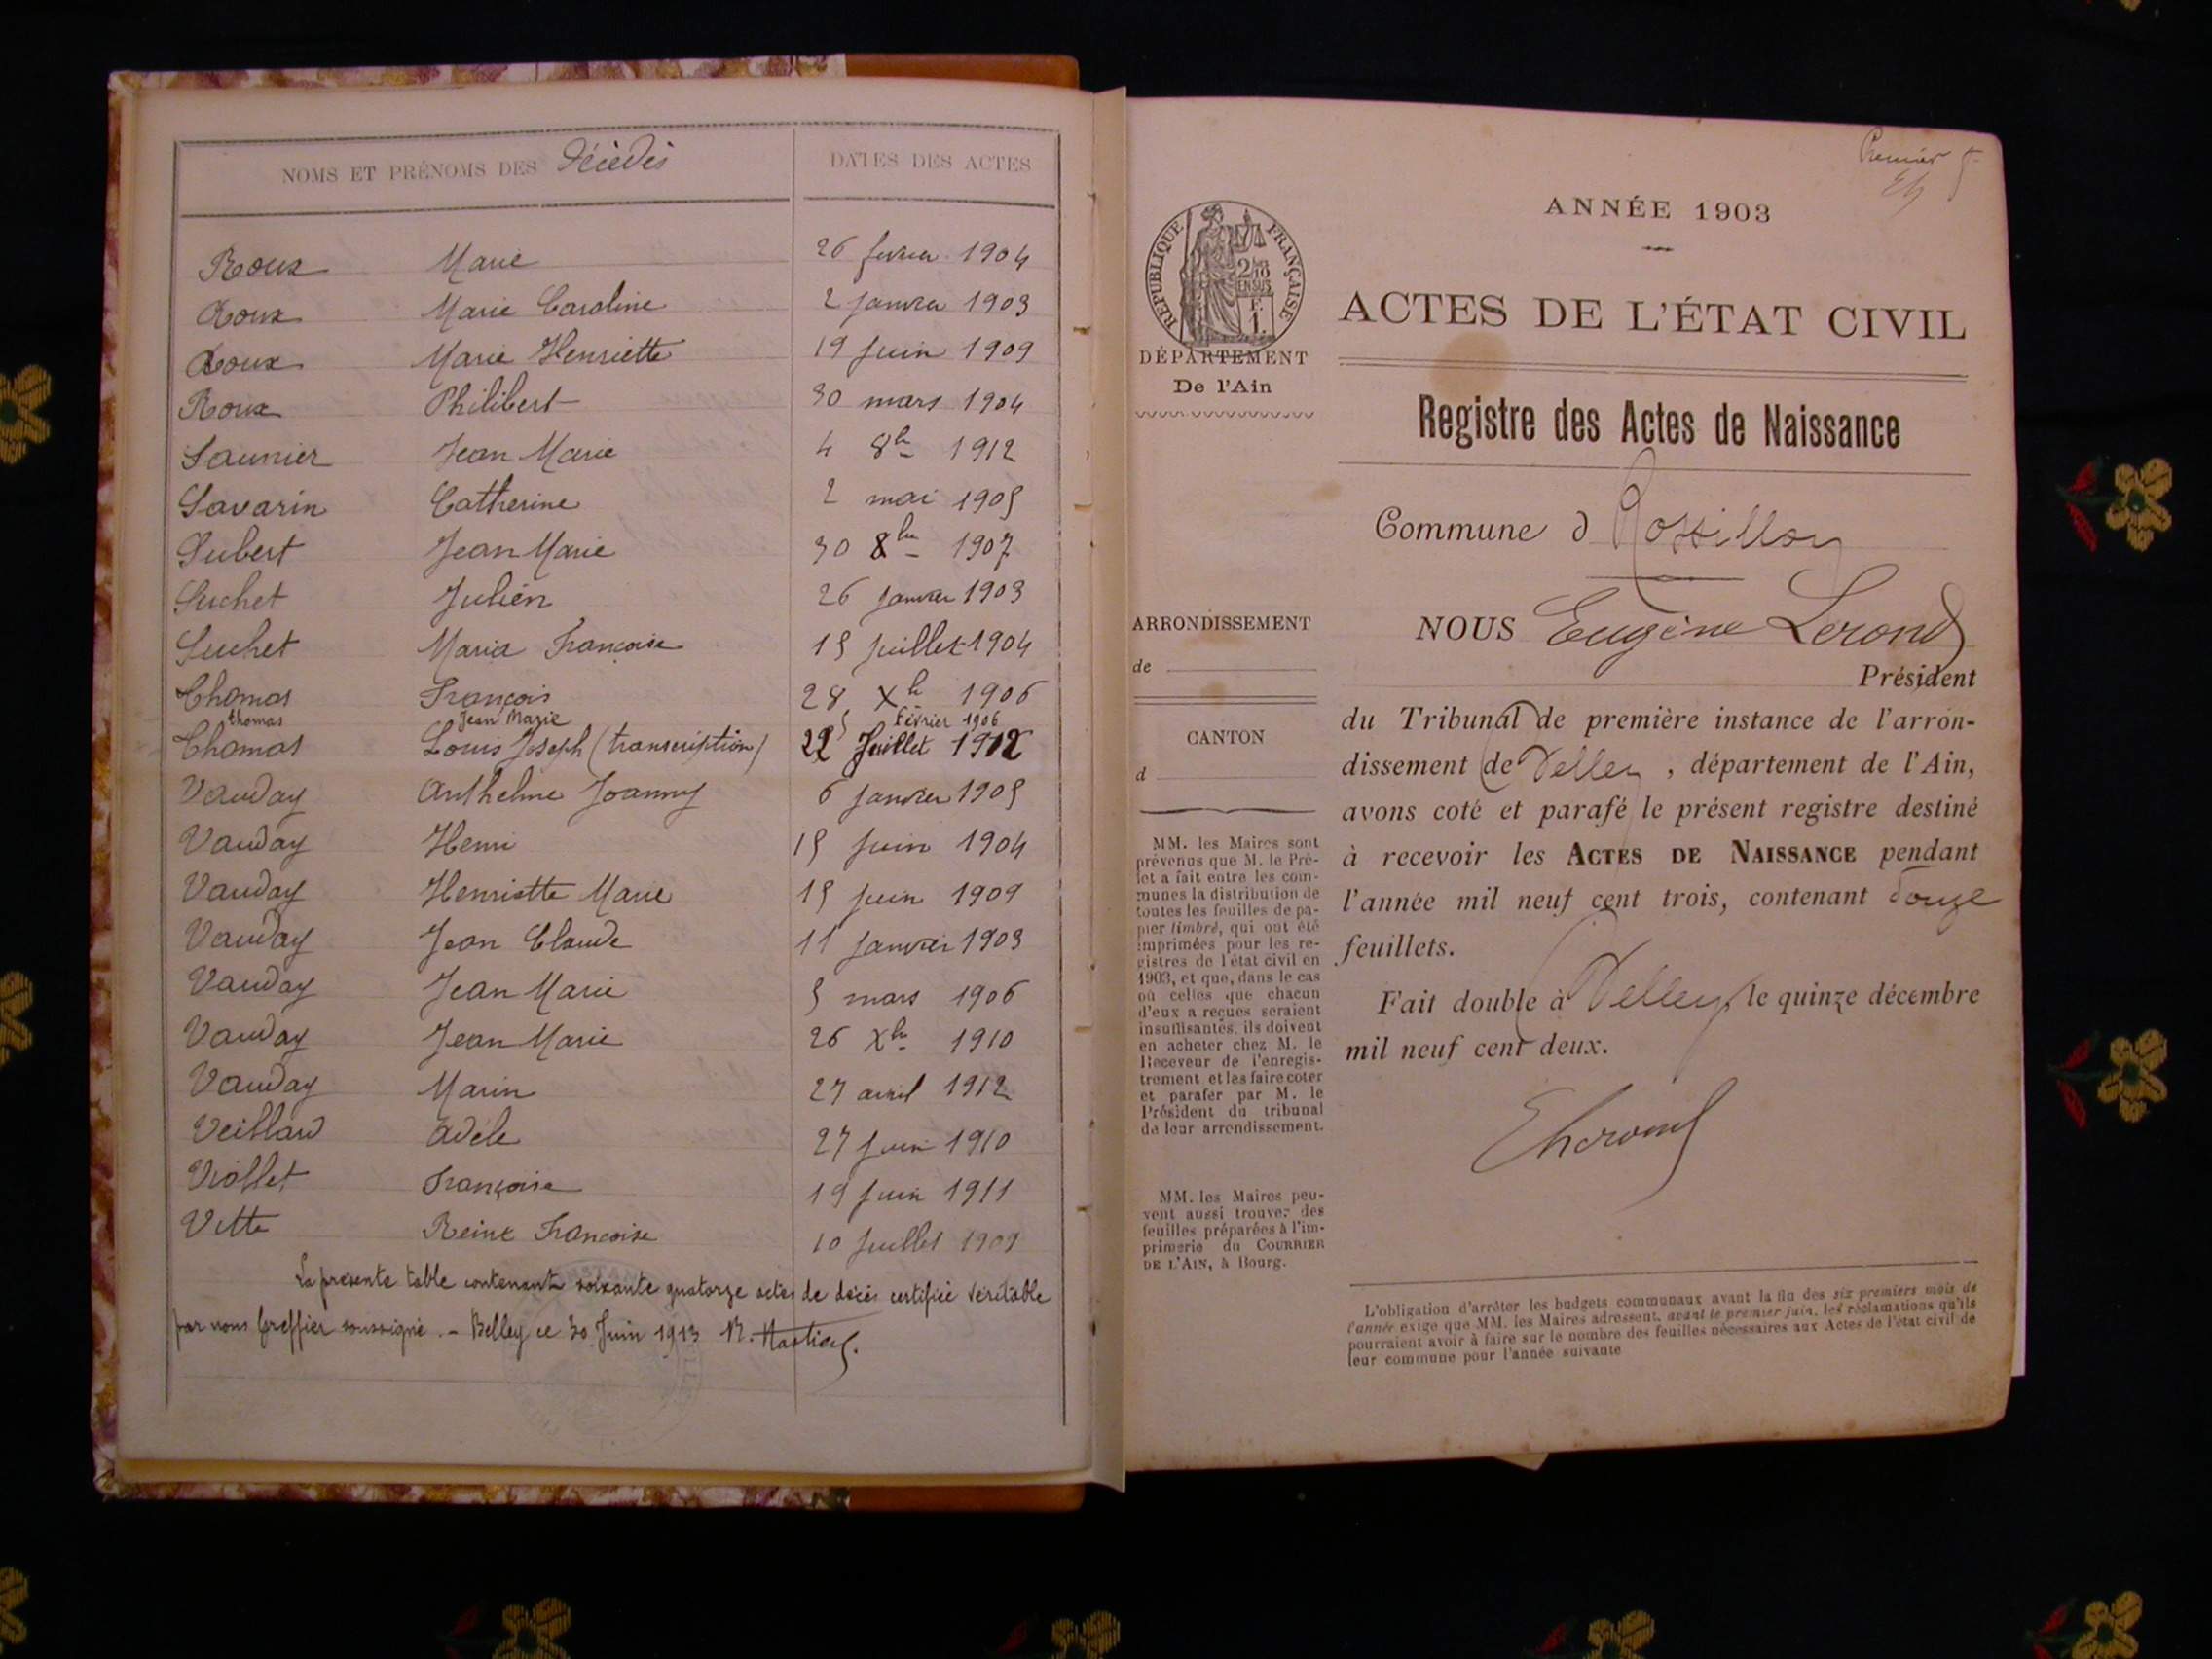 NOMS ET PRÉNOMS DES Décédés DATES DES ACTES
Roux Marie 26 février 1904
Roux Marie Caroline 2 janvier 1903
Roux Marie Henriette 19 juin 1909
Roux Philibert 30 mars 1904
Saunier Jean Marie 4 8bre 1912
Savarin Catherine 2 mai 1905
Subert Jean Marie 30 8bre 1907
Suchet Julien 26 janvier 1903
Suchet Maria Françoise 15 juillet 1904
Thomas François 28 Xbre 1906
thomas Jean Marie 5 Février 1906
Thomas Louis Joseph (transcription) 22 Juillet 1912
Vauday Anthelme Joanny 6 janvier 1905
Vauday Henri 15 juin 1904
Vauday Henriette Marie 15 juin 1909
Vauday Jean Claude 11 janvier 1903
Vauday Jean Marie 5 mars 1906
Vauday Jean Marie 26 Xbre 1910
Vauday Marin 27 avril 1912
Veillard Adèle 27 juin 1910
Viollet Françoise 19 juin 1911
Vitte Reine Françoise 10 juillet 1909
La présente table contenant soixante quatorze actes de décès certifiée véritable
par nous Greffier soussigné. - Belley ce 30 Juin 1913
Premier
ANNÉE 1903
RÉPUBLIQUE FRANÇAISE
DÉPARTEMENT
De l'Ain
ACTES DE L'ÉTAT CIVIL
Registre des Actes de Naissance
Commune d Rossillon
ARRONDISSEMENT
de
CANTON
d
NOUS Eugène Lerond
Président
du Tribunal de première instance de l'arron-
dissement de Belley, département de l'Ain,
avons coté et parafé le présent registre destiné
à recevoir les ACTES DE NAISSANCE pendant
l'année mil neuf cent trois, contenant douze
feuillets.
Fait double à Belley, le quinze décembre
mil neuf cent deux.
ELerond
MM. les Maires sont
prévenus que M. le Pré-
fet a fait entre les com-
munes la distribution de
toutes les feuilles de pa-
pier timbré, qui ont été
imprimées pour les re-
gistres de l'état civil en
1903, et que, dans le cas
où celles que chacun
d'eux a reçues seraient
insuffisantes, ils doivent
en acheter chez M. le
Receveur de l'enregis-
trement et les faire coter
et parafer par M. le
Président du tribunal
de leur arrondissement.
MM. les Maires peu-
vent aussi trouver des
feuilles préparées à l'im-
primerie du COURRIER
DE L'AIN, à Bourg.
L'obligation d'arrêter les budgets communaux avant la fin des six premiers mois de
l'année exige que MM. les Maires adressent, avant le premier juin, les réclamations qu'ils
pourraient avoir à faire sur le nombre des feuilles nécessaires aux Actes de l'état civil de
leur commune pour l'année suivante